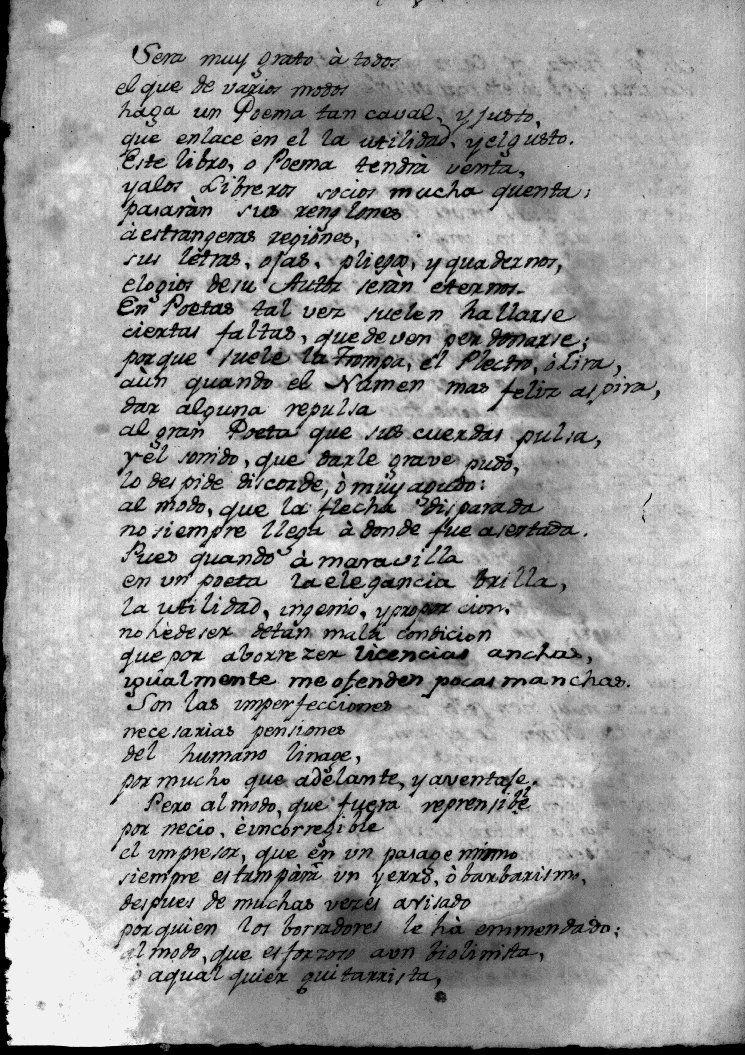 Sera muy grato à todos
el que de varios modos
haga un Poema tan caval, y justo,
que enlace en el la utilidad, y el gusto.
Este libro, o Poema tendrà venta,
y alos Libreros socios mucha quenta;
pasaràn sus renglones
à estrangeras regiones,
sus letras, ojas, pliegos, y quadernos,
elogios de su Autor seràn eternos.
En Poetas tal vez suelen hallarse
ciertas faltas, que deven perdonarse;
porque suele la Trompa, el Plectro, ò Lira,
aùn quando el Numen mas feliz aspira,
dar alguna repulsa
al gran Poeta que sus cuerdas pulsa,
y el sonido, que darle grave pudo,
lo despide discorde, ò muy agudo:
al modo, que la flecha disparada
no siempre llega à donde fue asertada.
Pues quando à maravilla
en un poeta la elegancia brilla,
la utilidad, ingenio, y proporcion,
no hè de ser de tan mala condicion
que por aborrezer licencias anchas,
igualmente me ofenden pocas manchas.
Son las imperfecciones
necesarias pensiones
del humano linage,
por mucho que adelante, y aventaje.
Pero al modo, que fuera reprensible
por necio, è incorregible
el impresor, que en un pasage mismo
siempre estampàra un yerro, ò barbarismo,
despues de muchas vezes avisado
por quien los borradores le hà emmendado;
al modo, que es forzoso a un biolinista,
ò a qual quier guitarrista,